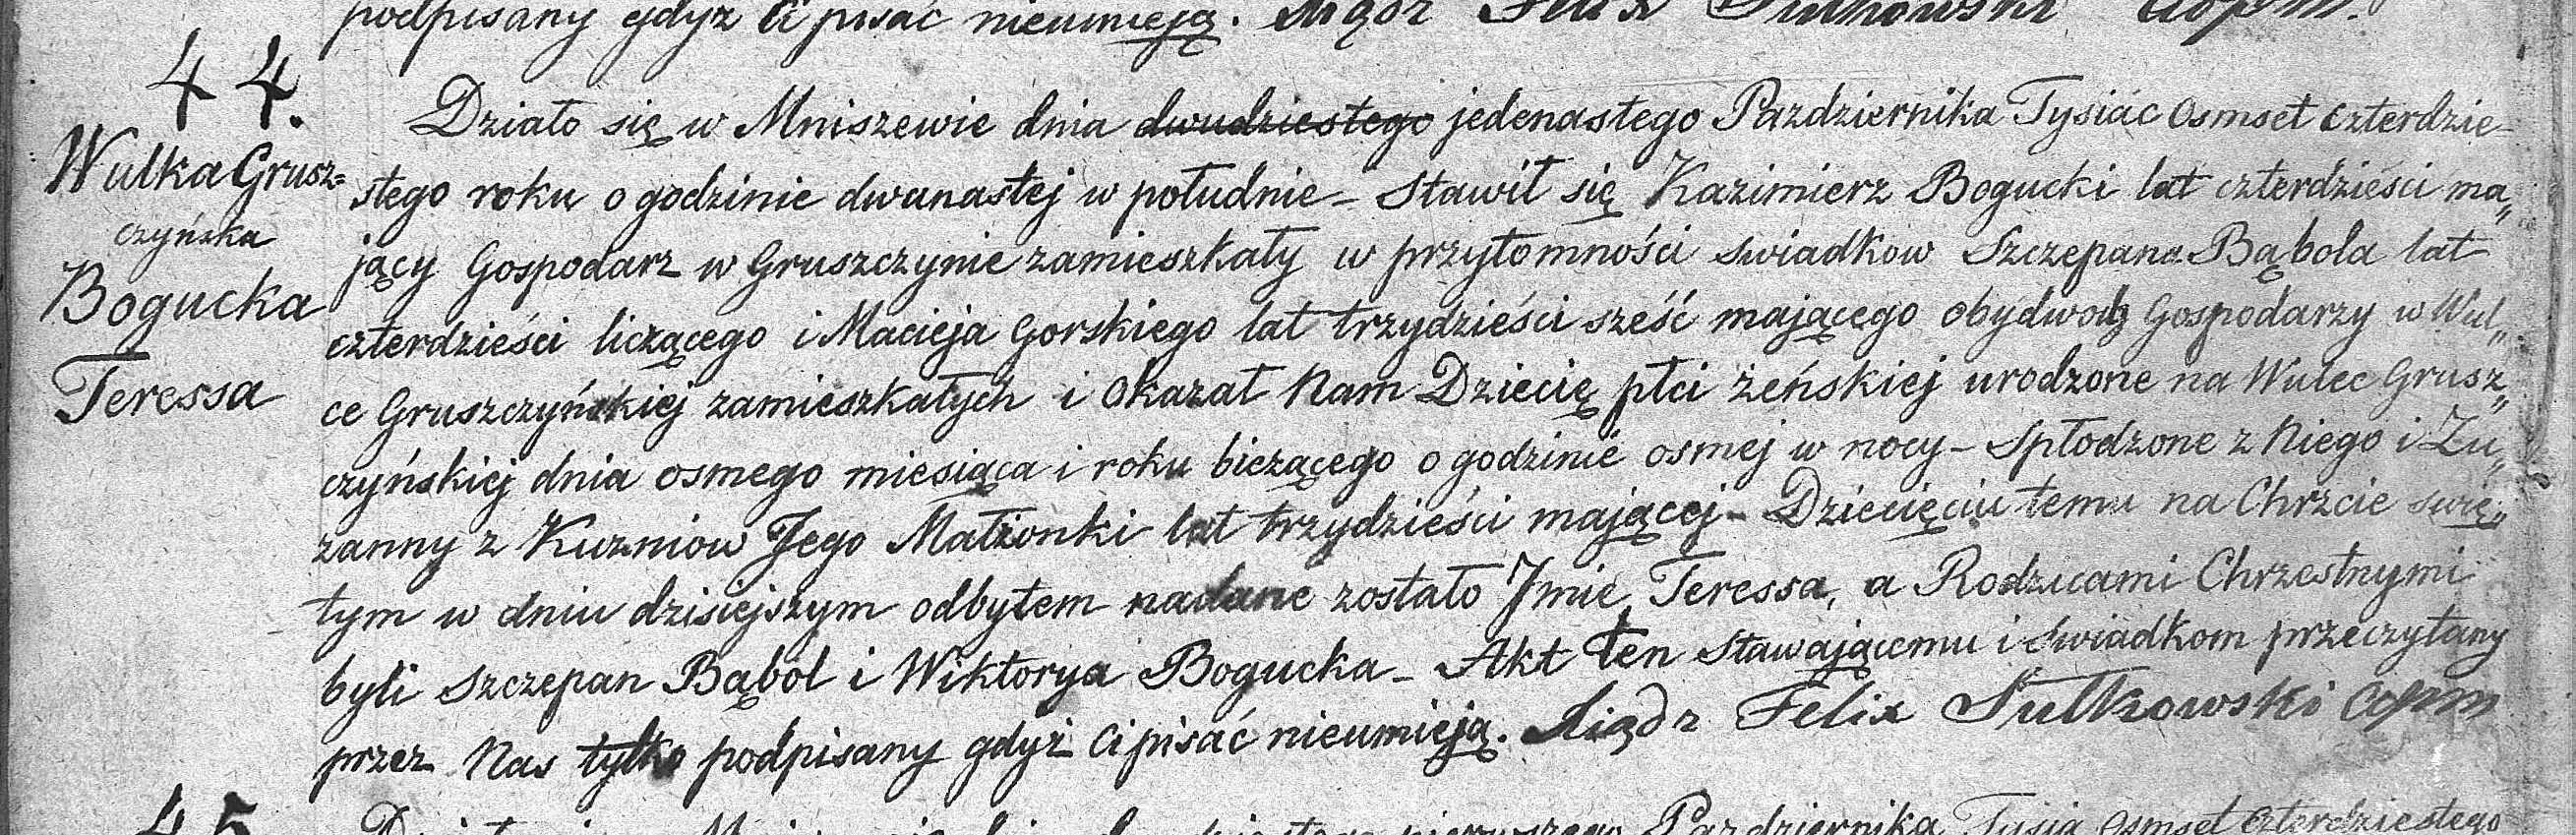 podpisany gdyż Ci pisać nieumieją. Xiądz Felix Sutkowski
44.
Wulka Grusz=
czyńska
Bogucka
Teressa
Działo się w Mniszewie dnia dwudziestego jedenastego Pazdziernika Tysiąc Osmset czterdzie-
stego roku o godzinie dwanastej w południe – Stawił się Kazimierz Bogucki lat czterdzieści ma„
jący Gospodarz w Gruszczynie zamieszkały w przytomności swiadkow Szczepana Bąbola lat
czterdzieści liczącego i Macieja Gorskiego lat trzydzieści sześć mającego obydwoch Gospodarzy w Wul„
ce Gruszczyńskiej zamieszkałych i okazał Nam Dziecię płci żeńskiej urodzone na Wulce Grusz„
czyńskiej dnia osmego miesiąca i roku bieżącego o godzinie osmej w nocy – Spłodzone z Niego i Zu„
zanny z Kuzniow Jego Małżonki lat trzydzieści mającej – Dziecięciu temu na Chrzcie swię„
tym w dniu dzisiejszym odbytem nadane zostało Jmie Teressa, a Rodzicami Chrzestnymi
byli Szczepan Bąbol i Wiktorya Bogucka – Akt ten Stawającemu i Swiadkom przeczytany
przez Nas tylko podpisany gdyż Ci pisać nieumieją. Xiądz Felix Sutkowski
45
Pazdziernika Tysią Osmset Czterdziestego